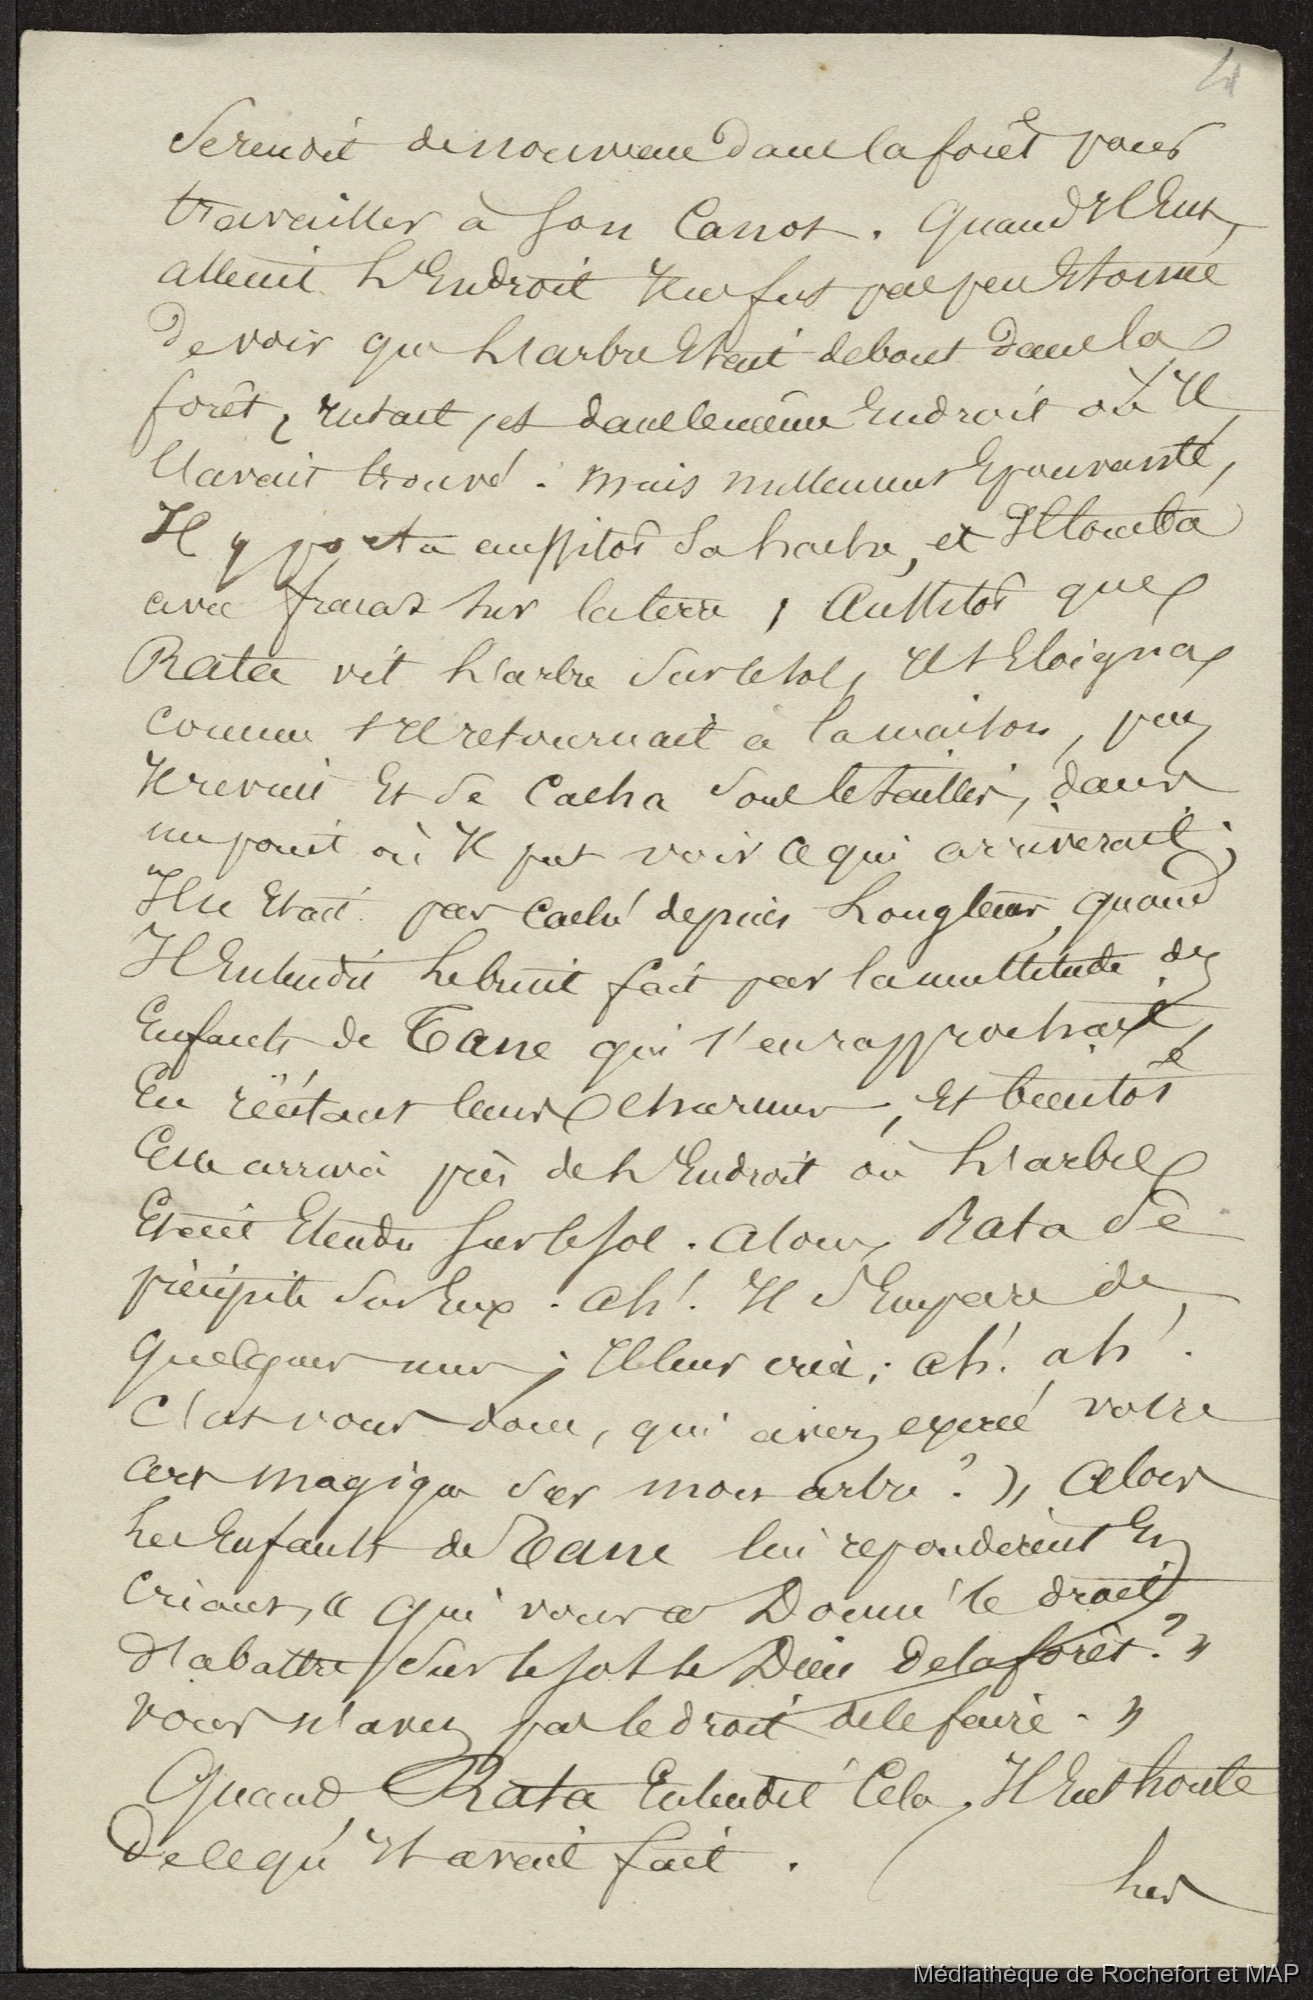 4
Se rendit de nouveau dans la forêt pour
travailler à son Canot. Quand Il Eut,
atteint L'Endroit Il ne fut pas peu Etonné
De voir que L'arbre Etait debout dans la
forêt, intact, et dans le même Endroit où Il
l'avait trouvé. Mais nullement Epouvanté,
Il y porta aussitôt Sa hache, et Il tomba
avec fracas Sur la terre, Aussitôt que
Rata vit L'arbre Sur le Sol, Il S'Eloigna
comme s'Il retournait à la maison, puis
Il revint Et Se Cacha Sous le taillis, dans
un point où Il put voir ce qui arriverait;
Il n'Etait pas Caché depuis Longtems, quand
Il Entendit Le bruit fait par la multitude des
Enfants de Tane qui s'en rapprochait,
En récitant leurs charmes, Et bientôt
Elle arriva près de L'Endroit où L'arbre
Etait Etendu Sur le Sol. Alors Rata Se
précipite Sur Eux. Ah! Il S'Empare de
quelques uns; Il leur cria: Ah! ah!
C'est vous donc, qui avez exercé votre
art magique Sur mon arbre? » Alors
Les Enfants de Tane lui répondirent En
criant, « Qui vous a Donné le droit
D'abattre Sur le Sol le Dieu de la forêt? »
Vous n'avez pas le droit de le faire. »
Quand Rata Entendit Cela, Il Eut honte
De ce qu'Il avait fait.
Les
Médiathèque de Rochefort et MAP